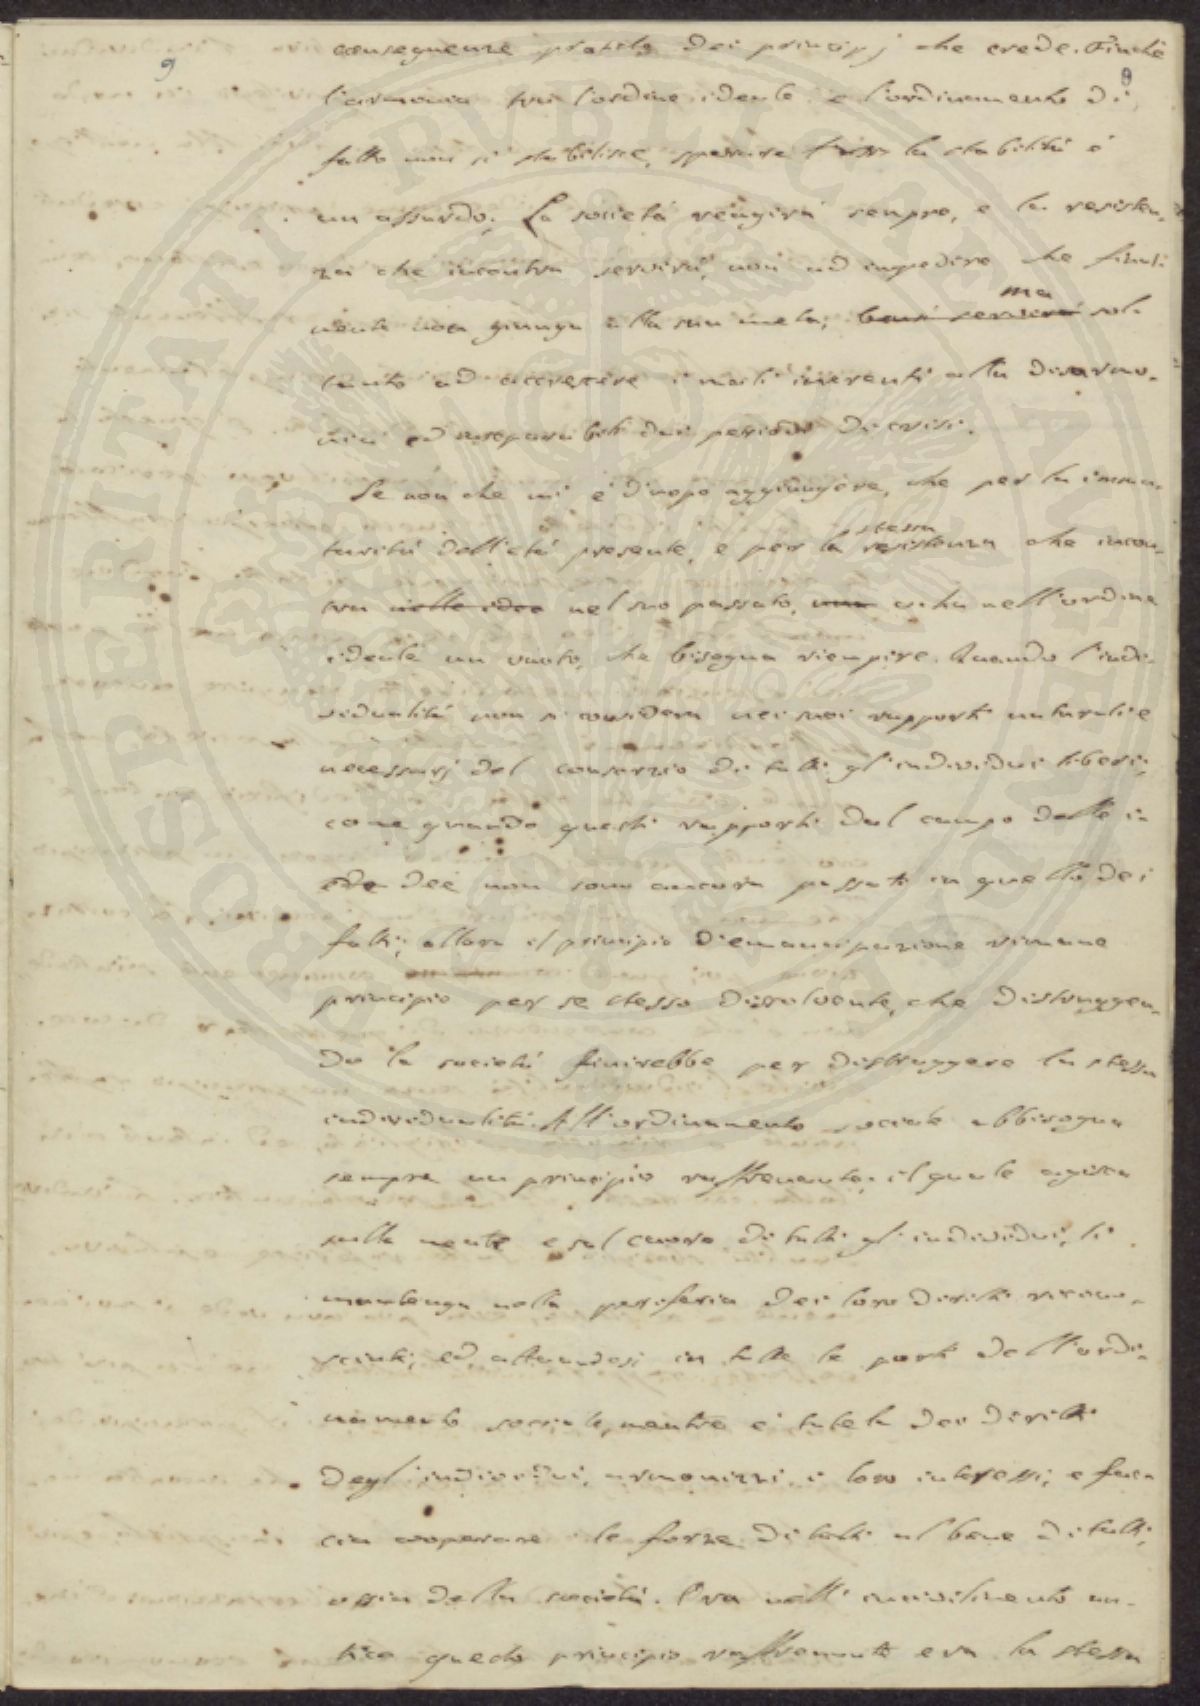 9
conseguenze pratiche dei principj che crede. Finchè
9
l'armonia tra l'ordine ideale e l'ordinamento di
fatto non si stabilisce, sperare la stabilità è
un assurdo. La società reagirà sempre, e la resisten-
za che incontra servirà, non ad impedire che final-
mente non giunga alla sua meta, bensì servirà ma sol-
tanto ad accrescere i mali inerenti alla disarmo-
nia ed inseparabili dai periodi di crisi.
Se non che mi è d'uopo aggiungere, che per la imma-
turità dell'età presente, e per la stessa resistenza che incon-
tra nelle idee nel suo passato, evvi nell'ordine
ideale un vuoto, che bisogna riempire. Quando l'indi-
vidualità non si considera nei suoi rapporti naturali e
necessarj del consorzio di tutti gl'individui liberi,
come quando questi rapporti dal campo delle i-
dee non sono ancora passati in quello dei
fatti, allora il principio d'emancipazione rimane
principio per se stesso dissolvente, che distruggen-
do la società finirebbe per distruggere la stessa
individualità. All'ordinamento sociale abbisogna
sempre un principio raffrenante, il quale agisca
sulla mente e sul cuore di tutti gl'individui, li
mantenga nella periferia dei loro diritti ricono-
sciuti, ed attuandosi in tutte le parti dell'ordi-
namento sociale, mentre è tutela dei diritti
degl'individui, armonizzi i loro interessi, e fac-
cia cooperare le forze di tutti al bene di tutti,
ossia della società. Ora nell'incivilimento an-
tico questo principio raffrenante era la stessa